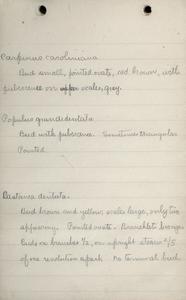 Carpinus caroliniana
Bud small, pointed ovate, red brown, with
pubescence on upper scales, grey.
Populus grandidentata
Bud with pubescence. Sometimes triangular
Pointed
Castanea dentata.
Bud brown and yellow, scales large, only two
appearing. Pointed ovate. Branchlets
buds on branches 1/2, on upright stems 2/5
of one revolution apart. No terminal bud.